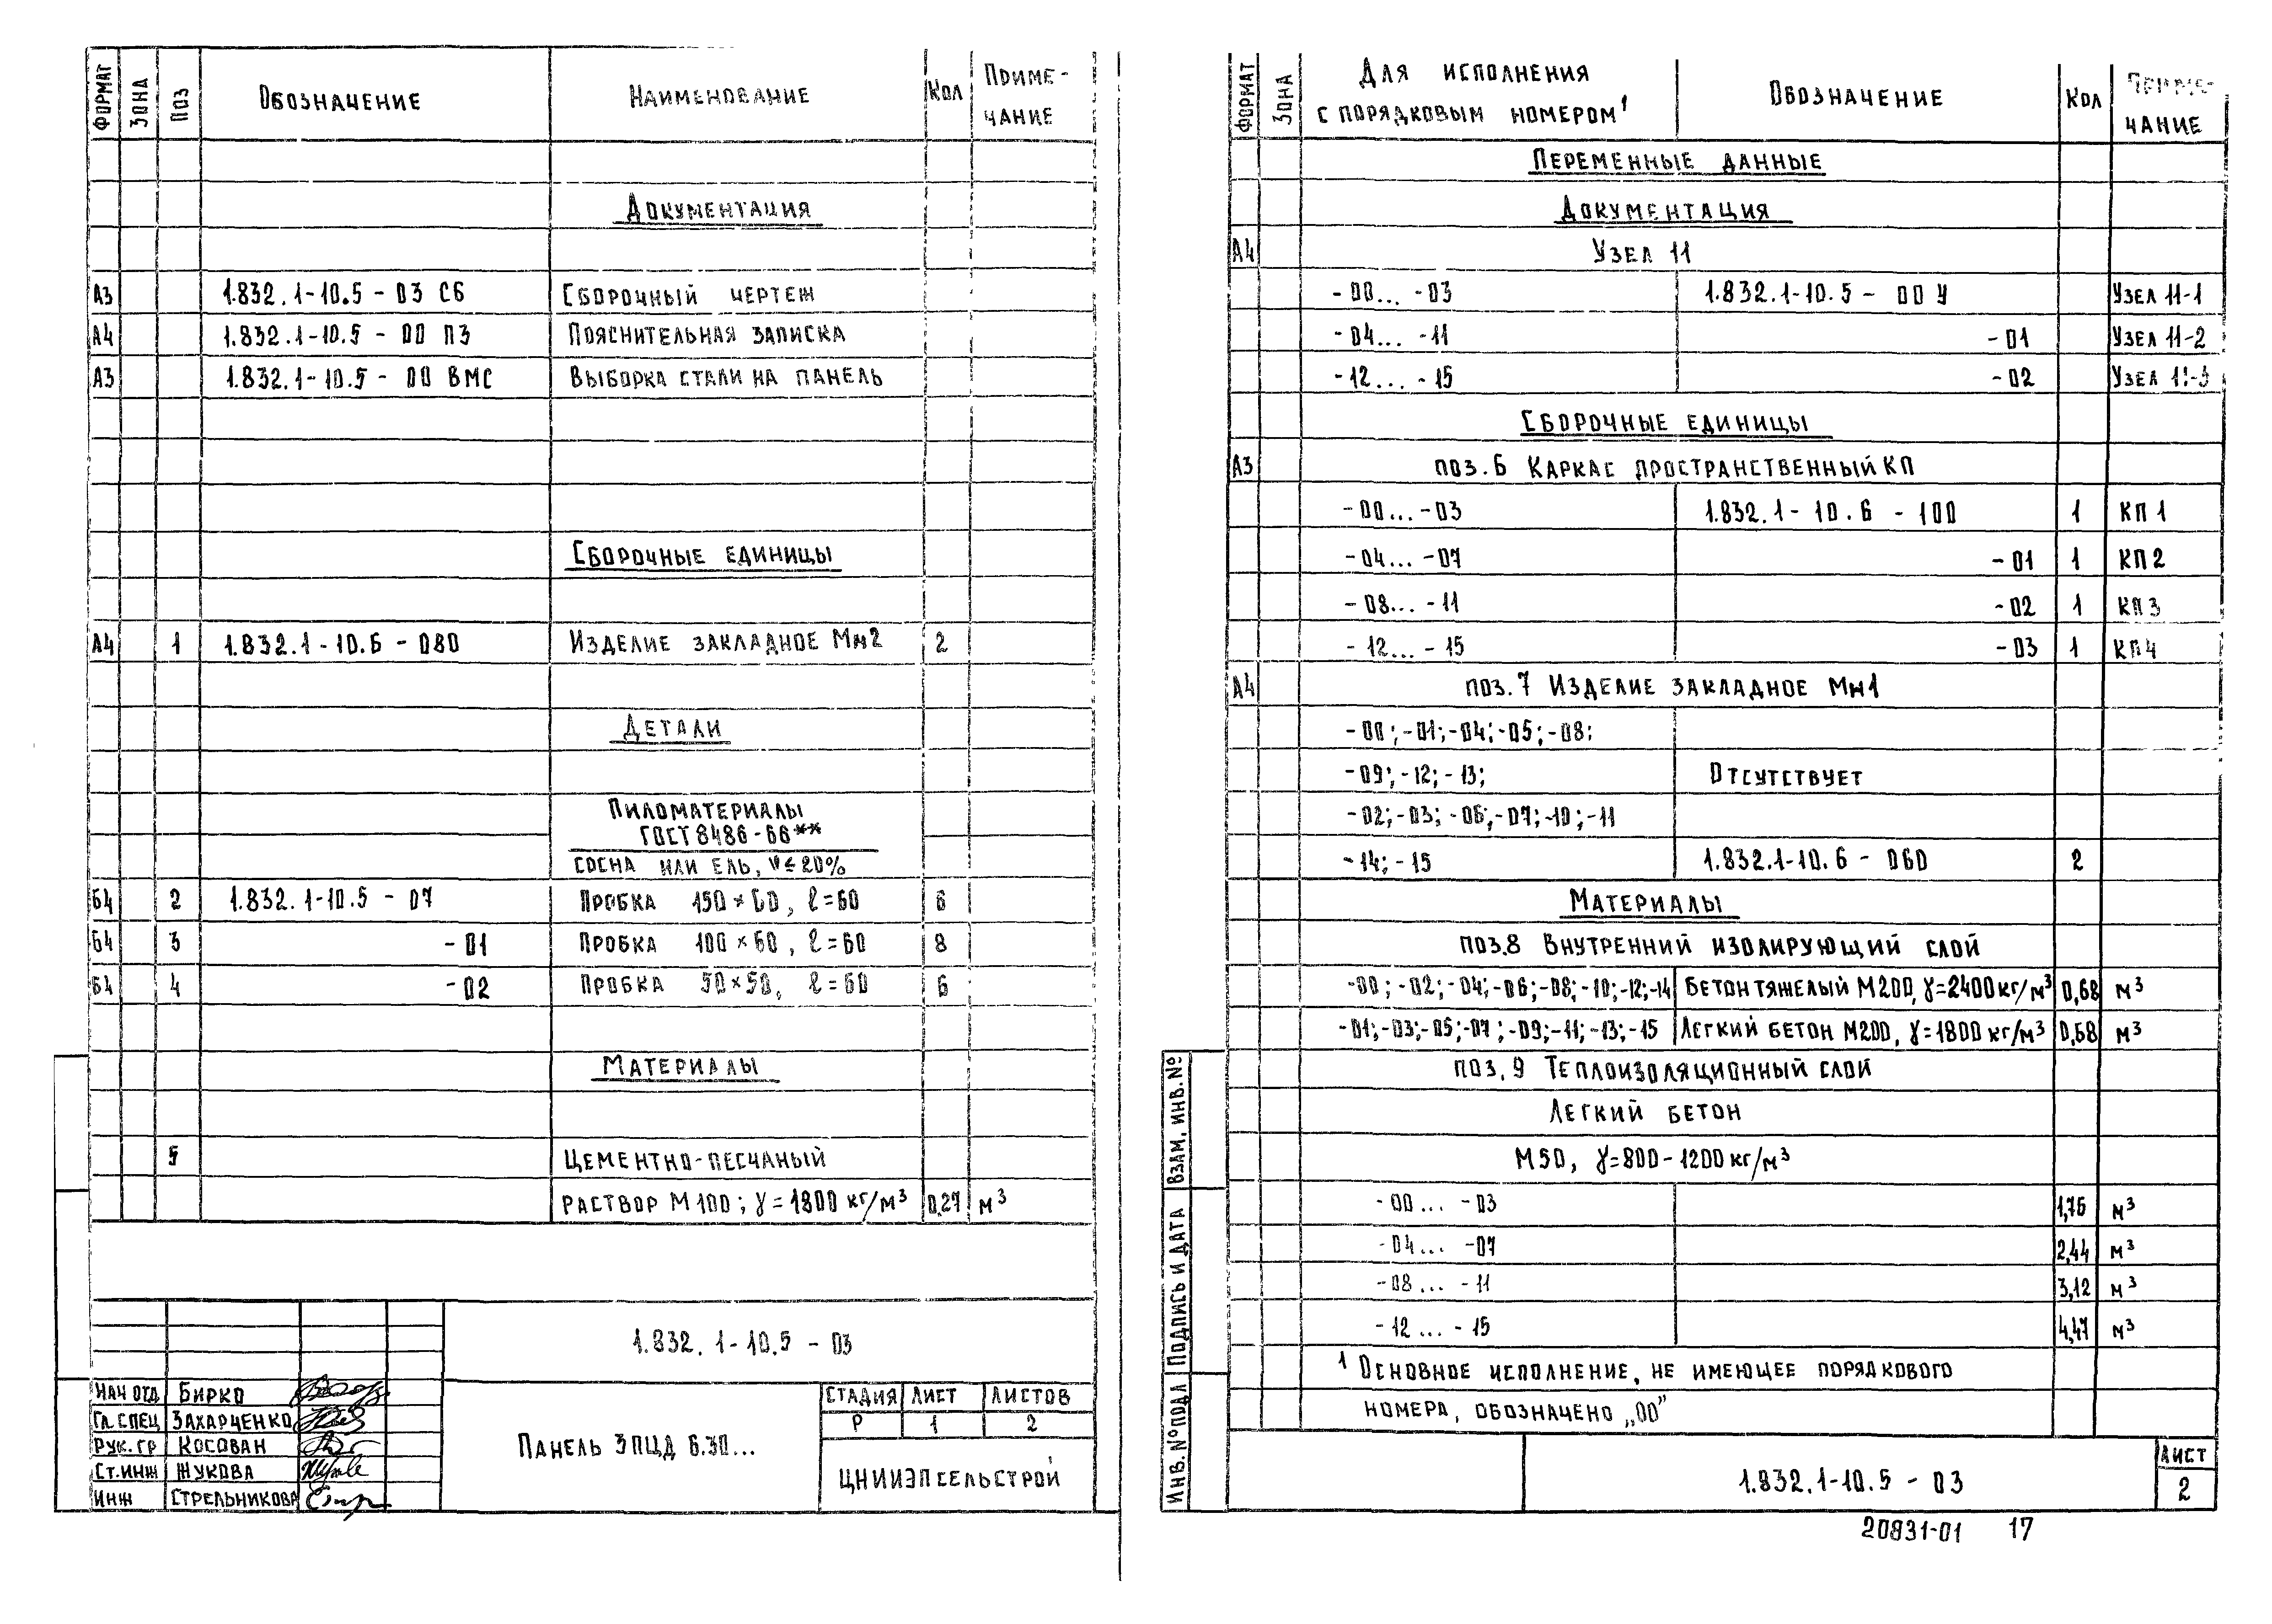 ФОРМАТ ЗОНА ПОЗ ОБОЗНАЧЕНИЕ НАИМЕНОВАНИЕ КОЛ ПРИМЕ-
ЧАНИЕ
ДОКУМЕНТАЦИЯ
А3 1.832.1-10.5 - 03 СБ СБОРОЧНЫЙ ЧЕРТЕЖ
А4 1.832.1-10.5 - 00 ПЗ ПОЯСНИТЕЛЬНАЯ ЗАПИСКА
А3 1.832.1-10.5 - 00 ВМС ВЫБОРКА СТАЛИ НА ПАНЕЛЬ
СБОРОЧНЫЕ ЕДИНИЦЫ
А4 1 1.832.1-10.6 - 080 ИЗДЕЛИЕ ЗАКЛАДНОЕ Мн2 2
ДЕТАЛИ
ПИЛОМАТЕРИАЛЫ
ГОСТ 8486-66**
СОСНА ИЛИ ЕЛЬ, W≤20%
Б4 2 1.832.1-10.5 - 07 ПРОБКА 150×60, ℓ=60 6
Б4 3 -01 ПРОБКА 100×60, ℓ=60 8
Б4 4 -02 ПРОБКА 50×50, ℓ=60 6
МАТЕРИАЛЫ
5 ЦЕМЕНТНО-ПЕСЧАНЫЙ
РАСТВОР М100; γ=1800 кг/м³ 0,27 м³
1.832.1-10.5 - 03
НАЧ ОТД БИРКО
ГЛ.СПЕЦ ЗАХАРЧЕНКО
РУК.ГР КОСОВАН
СТ.ИНЖ ЖУКОВА
ИНЖ СТРЕЛЬНИКОВА
ПАНЕЛЬ 3ПЦД 6.30...
СТАДИЯ ЛИСТ ЛИСТОВ
Р 1 2
ЦНИИЭПСЕЛЬСТРОЙ
ФОРМАТ ЗОНА ДЛЯ ИСПОЛНЕНИЯ
С ПОРЯДКОВЫМ НОМЕРОМ¹ ОБОЗНАЧЕНИЕ КОЛ ПРИМЕ-
ЧАНИЕ
ПЕРЕМЕННЫЕ ДАННЫЕ
ДОКУМЕНТАЦИЯ
А4 УЗЕЛ 11
-00... -03 1.832.1-10.5 - 00 У УЗЕЛ 11-1
-04... -11 -01 УЗЕЛ 11-2
-12... -15 -02 УЗЕЛ 11-3
СБОРОЧНЫЕ ЕДИНИЦЫ
А3 ПОЗ.6 КАРКАС ПРОСТРАНСТВЕННЫЙ КП
-00... -03 1.832.1-10.6 - 100 1 КП1
-04... -07 -01 1 КП2
-08... -11 -02 1 КП3
-12... -15 -03 1 КП4
А4 ПОЗ.7 ИЗДЕЛИЕ ЗАКЛАДНОЕ Мн1
-00; -01; -04; -05; -08;
-09; -12; -13; ОТСУТСТВУЕТ
-02; -03; -06; -07; -10; -11
-14; -15 1.832.1-10.6 - 060 2
МАТЕРИАЛЫ
ПОЗ.8 ВНУТРЕННИЙ ИЗОЛИРУЮЩИЙ СЛОЙ
-00; -02; -04; -06; -08; -10; -12; -14 БЕТОН ТЯЖЕЛЫЙ М200, γ=2400кг/м³ 0,68 м³
-01; -03; -05; -07; -09; -11; -13; -15 ЛЕГКИЙ БЕТОН М200, γ=1800 кг/м³ 0,68 м³
ПОЗ.9 ТЕПЛОИЗОЛЯЦИОННЫЙ СЛОЙ
ЛЕГКИЙ БЕТОН
М50, γ=800-1200кг/м³
-00... -03 1,76 м³
-04... -07 2,44 м³
-08... -11 3,12 м³
-12... -15 4,47 м³
¹ ОСНОВНОЕ ИСПОЛНЕНИЕ, НЕ ИМЕЮЩЕЕ ПОРЯДКОВОГО
НОМЕРА, ОБОЗНАЧЕНО „00”
ИНВ.№ПОДЛ ПОДПИСЬ И ДАТА ВЗАМ.ИНВ.№
1.832.1-10.5 - 03
ЛИСТ
2
20831-01 17